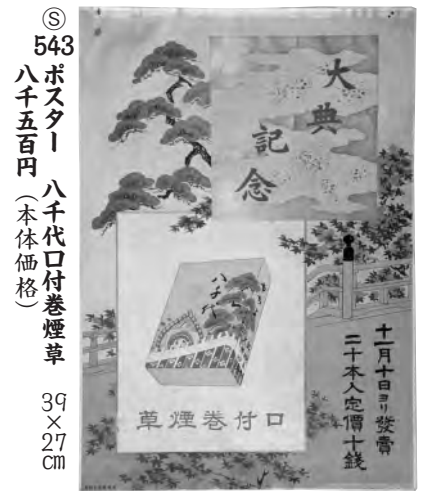 Ⓢ
543 ポスター 八千代口付巻煙草 39×27cm
八千五百円（本体価格）
大典
記念
八千代
草煙巻付口
十一月十日ヨリ發賣
二十本入定價十錢